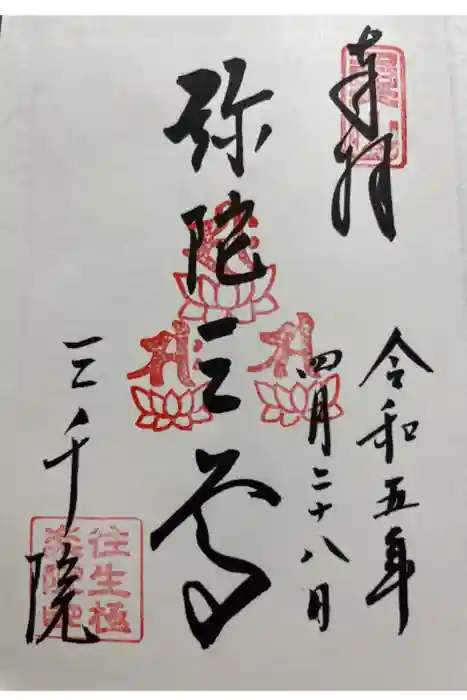 奉拝
令和五年
四月二十八日
弥陀三尊
三千院
往生極
楽院印